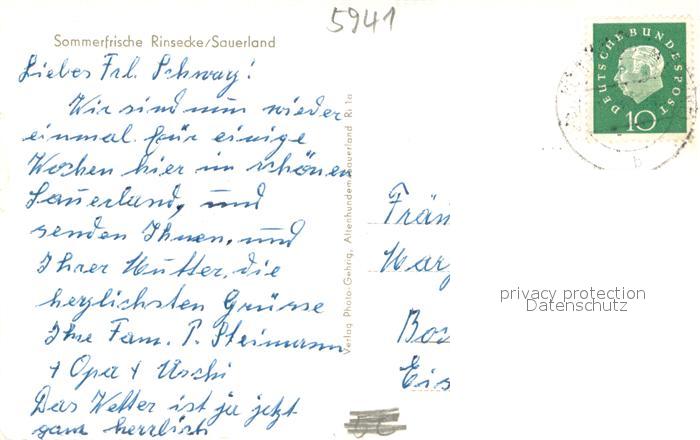 5941
Sommerfrische Rinsecke/Sauerland
Liebes Frl. Schwarz!
Wir sind nun wieder
einmal für einige
Wochen hier im schönen
Sauerland, und
senden Ihnen, und
Ihrer Mutter, die
herzlichsten Grüsse
Ihre Fam. P. Steimann
+ Opa + Uschi
Das Wetter ist ja jetzt
ganz herrlich
Verlag Photo-Gehrig, Altenhundem-Sauerland Ri 1a
DEUTSCHE BUNDESPOST
10
b
Fräu
Marg
Boc
Eis
privacy protection
Datenschutz